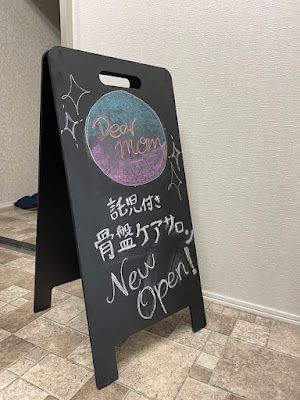 Dear
mom
託児付き
骨盤ケアサロン
New
Open!